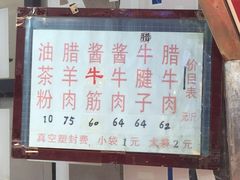 价目表
元/斤
腊牛肉 62
腊牛腱子 64
酱牛肉 64
酱牛筋 60
腊羊肉 75
油茶粉 10
真空塑封费 小袋1元 大袋2元